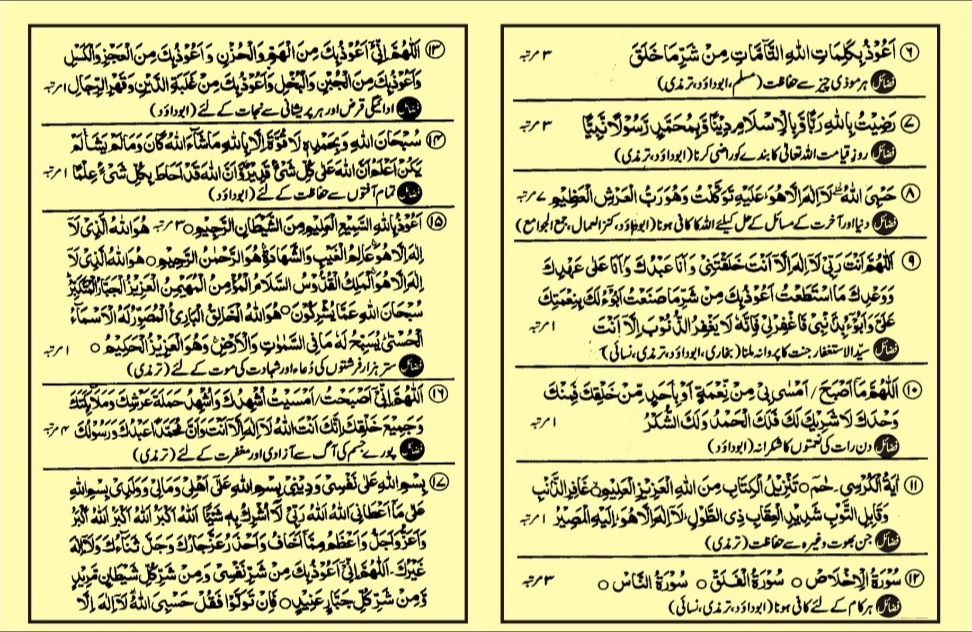 ۶ اَعُوْذُ بِكَلِمَاتِ اللهِ التَّامَّاتِ مِنْ شَرِّ مَا خَلَقَ ۳ مرتبہ
فضائل ہر موذی چیز سے حفاظت (مسلم، ابوداؤد، ترمذی)
۷ رَضِيْتُ بِاللهِ رَبًّا وَّبِالْاِسْلَامِ دِيْنًا وَّبِمُحَمَّدٍ رَّسُوْلًا نَّبِيًّا ۳ مرتبہ
فضائل روزِ قیامت اللہ تعالیٰ کا بندے کو راضی کرنا (ابوداؤد، ترمذی)
۸ حَسْبِيَ اللهُ لَا اِلٰهَ اِلَّا هُوَ عَلَيْهِ تَوَكَّلْتُ وَهُوَ رَبُّ الْعَرْشِ الْعَظِيْمِ ۷ مرتبہ
فضائل دنیا اور آخرت کے مسائل کے حل کیلئے اللہ کا کافی ہونا (ابوداؤد، کنز العمال، جمع الجوامع)
۹ اَللّٰهُمَّ اَنْتَ رَبِّيْ لَا اِلٰهَ اِلَّا اَنْتَ خَلَقْتَنِيْ وَاَنَا عَبْدُكَ وَاَنَا عَلٰى عَهْدِكَ
وَوَعْدِكَ مَا اسْتَطَعْتُ اَعُوْذُ بِكَ مِنْ شَرِّ مَا صَنَعْتُ اَبُوْءُ لَكَ بِنِعْمَتِكَ
عَلَيَّ وَاَبُوْءُ بِذَنْبِيْ فَاغْفِرْلِيْ فَاِنَّهٗ لَا يَغْفِرُ الذُّنُوْبَ اِلَّا اَنْتَ ۱ مرتبہ
فضائل سیّد الاستغفار جنت کا پروانہ ملنا (بخاری، ابوداؤد، ترمذی، نسائی)
۱۰ اَللّٰهُمَّ مَا اَصْبَحَ / اَمْسٰى بِيْ مِنْ نِّعْمَةٍ اَوْ بِاَحَدٍ مِّنْ خَلْقِكَ فَمِنْكَ
وَحْدَكَ لَا شَرِيْكَ لَكَ فَلَكَ الْحَمْدُ وَلَكَ الشُّكْرُ ۱ مرتبہ
فضائل دن رات کی نعمتوں کا شکرانہ (ابوداؤد)
۱۱ اٰيَةُ الْكُرْسِي ـ حٰمٓ ○ تَنْزِيْلُ الْكِتَابِ مِنَ اللهِ الْعَزِيْزِ الْعَلِيْمِ ○ غَافِرِ الذَّنْبِ
وَقَابِلِ التَّوْبِ شَدِيْدِ الْعِقَابِ ذِى الطَّوْلِ لَا اِلٰهَ اِلَّا هُوَ اِلَيْهِ الْمَصِيْرُ ۱ مرتبہ
فضائل جن بھوت وغیرہ سے حفاظت (ترمذی)
۱۲ سُوْرَةُ الْاِخْلَاصْ ○ سُوْرَةُ الْفَلَقْ ○ سُوْرَةُ النَّاسْ ○ ۳ مرتبہ
فضائل ہر کام کے لئے کافی ہونا (ابوداؤد، ترمذی، نسائی)
۱۳ اَللّٰهُمَّ اِنِّيْ اَعُوْذُ بِكَ مِنَ الْهَمِّ وَالْحُزْنِ وَاَعُوْذُ بِكَ مِنَ الْعَجْزِ وَالْكَسَلِ
وَاَعُوْذُ بِكَ مِنَ الْجُبْنِ وَالْبُخْلِ وَاَعُوْذُ بِكَ مِنْ غَلَبَةِ الدَّيْنِ وَقَهْرِ الرِّجَالِ ۱ مرتبہ
فضائل ادائیگی قرض اور ہر پریشانی سے نجات کے لئے (ابوداؤد)
۱۴ سُبْحَانَ اللهِ وَبِحَمْدِهٖ لَا قُوَّةَ اِلَّا بِاللهِ مَا شَاءَ اللهُ كَانَ وَمَا لَمْ يَشَأْ لَمْ
يَكُنْ اَعْلَمُ اَنَّ اللهَ عَلٰى كُلِّ شَيْءٍ قَدِيْرٌ وَّاَنَّ اللهَ قَدْ اَحَاطَ بِكُلِّ شَيْءٍ عِلْمًا ۱ مرتبہ
فضائل تمام آفتوں سے حفاظت کے لئے (ابوداؤد)
۱۵ اَعُوْذُ بِاللهِ السَّمِيْعِ الْعَلِيْمِ مِنَ الشَّيْطَانِ الرَّجِيْمِ ○ ۳ مرتبہ هُوَ اللهُ الَّذِيْ لَا
اِلٰهَ اِلَّا هُوَ عَالِمُ الْغَيْبِ وَالشَّهَادَةِ هُوَ الرَّحْمٰنُ الرَّحِيْمُ ○ هُوَ اللهُ الَّذِيْ لَا
اِلٰهَ اِلَّا هُوَ اَلْمَلِكُ الْقُدُّوْسُ السَّلَامُ الْمُؤْمِنُ الْمُهَيْمِنُ الْعَزِيْزُ الْجَبَّارُ الْمُتَكَبِّرُ
سُبْحَانَ اللهِ عَمَّا يُشْرِكُوْنَ ○ هُوَ اللهُ الْخَالِقُ الْبَارِئُ الْمُصَوِّرُ لَهُ الْاَسْمَآءُ
الْحُسْنٰى يُسَبِّحُ لَهٗ مَا فِى السَّمٰوٰتِ وَالْاَرْضِ وَهُوَ الْعَزِيْزُ الْحَكِيْمُ ○ ۱ مرتبہ
فضائل ستر ہزار فرشتوں کی دُعاء اور شہادت کی موت کے لئے (ترمذی)
۱۶ اَللّٰهُمَّ اِنِّيْ اَصْبَحْتُ / اَمْسَيْتُ اُشْهِدُكَ وَاُشْهِدُ حَمَلَةَ عَرْشِكَ وَمَلَآئِكَتَكَ
وَجَمِيْعَ خَلْقِكَ اِنَّكَ اَنْتَ اللهُ لَا اِلٰهَ اِلَّا اَنْتَ وَاَنَّ مُحَمَّدًا عَبْدُكَ وَرَسُوْلُكَ ۴ مرتبہ
فضائل پورے جسم کی آگ سے آزادی اور مغفرت کے لئے (ترمذی)
۱۷ بِسْمِ اللهِ عَلٰى نَفْسِيْ وَدِيْنِيْ بِسْمِ اللهِ عَلٰى اَهْلِيْ وَمَالِيْ وَوَلَدِيْ بِسْمِ اللهِ
عَلٰى مَا اَعْطَانِيَ اللهُ اَللهُ رَبِّيْ لَا اُشْرِكُ بِهٖ شَيْئًا اَللهُ اَكْبَرُ اَللهُ اَكْبَرُ اَللهُ اَكْبَرُ
وَاَعَزُّ وَاَجَلُّ وَاَعْظَمُ مِمَّا اَخَافُ وَاَحْذَرُ عَزَّ جَارُكَ وَجَلَّ ثَنَاءُكَ وَلَا اِلٰهَ
غَيْرُكَ ـ اَللّٰهُمَّ اِنِّيْ اَعُوْذُ بِكَ مِنْ شَرِّ نَفْسِيْ وَمِنْ شَرِّ كُلِّ شَيْطَانٍ مَّرِيْدٍ
وَّمِنْ شَرِّ كُلِّ جَبَّارٍ عَنِيْدٍ ○ فَاِنْ تَوَلَّوْا فَقُلْ حَسْبِيَ اللهُ لَا اِلٰهَ اِلَّا